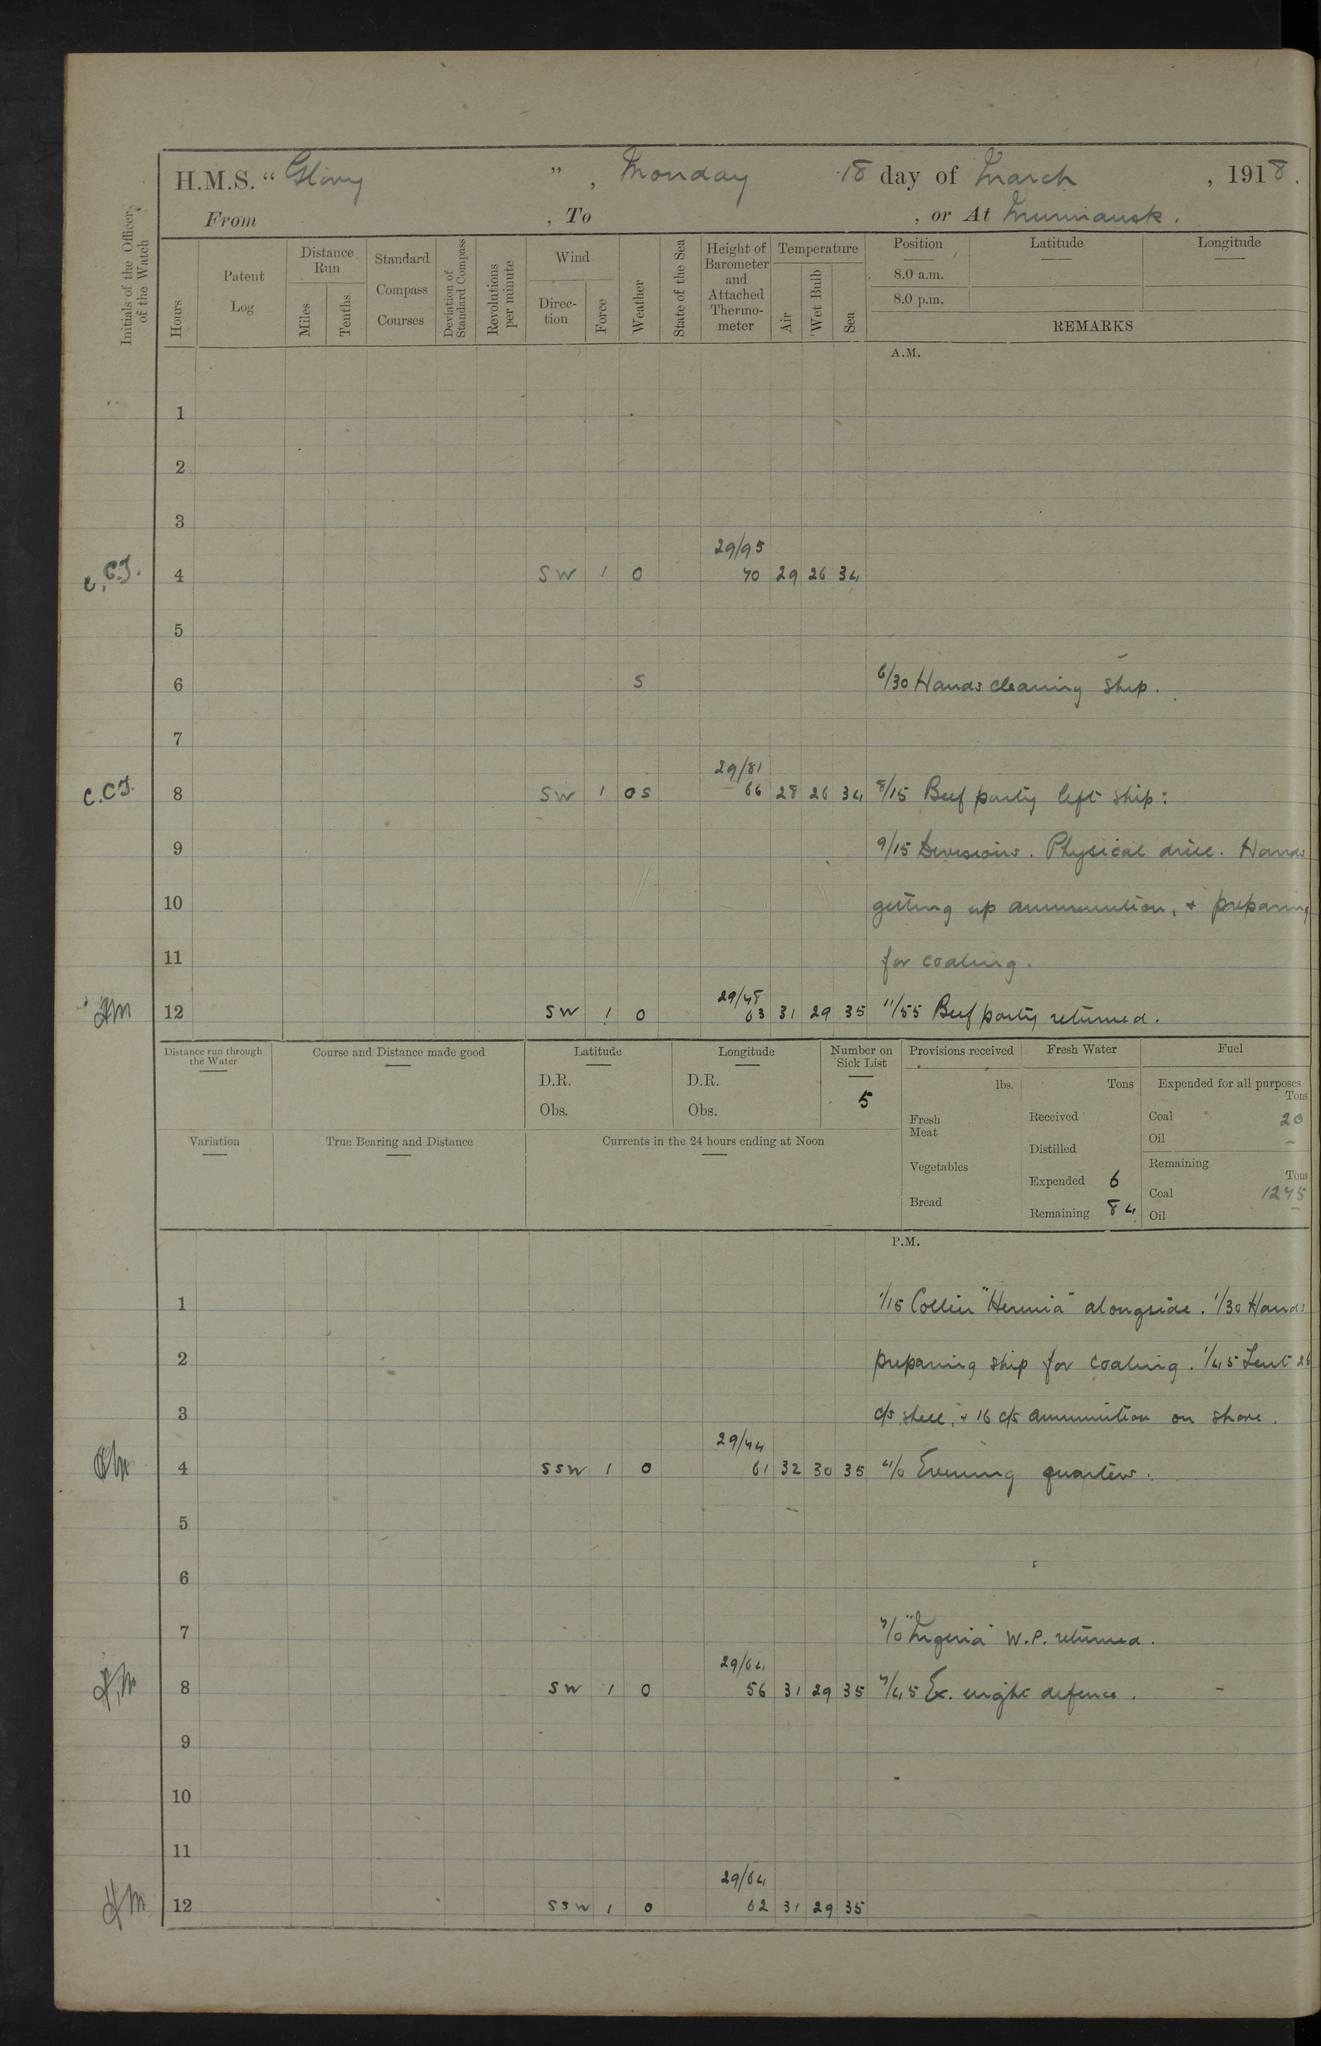 H.M.S. "Glory", Monday 18 day of March, 1918.
From , To , or At Murmansk.
Initials of the Officer of the Watch
Hours
Patent Log
Distance Run
Miles
Tenths
Standard Compass Courses
Deviation of Standard Compass
Revolutions per minute
Wind
Direction
Force
Weather
State of the Sea
Height of Barometer and Attached Thermometer
Temperature
Air
Wet Bulb
Sea
Position
Latitude
Longitude
8.0 a.m.
8.0 p.m.
REMARKS
A.M.
1
2
3
29/95
C.C.J. 4 SW 1 O 70 29 26 34
5
6 S 6/30 Hands cleaning ship.
7
29/81
C.C.J. 8 SW 1 OS 66 28 26 34 8/15 Beef party left ship:
9 9/15 Divisions. Physical drill. Hands
10 getting up ammunition, + preparing
11 for coaling.
29/48
12 SW 1 O 63 31 29 35 11/55 Beef party returned.
Distance run through the Water
Course and Distance made good
Latitude
D.R.
Obs.
Longitude
D.R.
Obs.
Number on Sick List
5
Variation
True Bearing and Distance
Currents in the 24 hours ending at Noon
Provisions received
lbs.
Fresh Meat
Vegetables
Bread
Fresh Water
Tons
Received
Distilled
Expended 6
Remaining 84
Fuel
Expended for all purposes
Tons
Coal 20
Oil –
Remaining
Tons
Coal 1275
Oil –
P.M.
1 1/15 Collier "Hermia" alongside. 1/30 Hands
2 preparing ship for coaling. 1/45 Sent 26
3 c/s shell, + 16 c/s ammunition on shore.
29/44
4 SSW 1 O 61 32 30 35 4/0 Evening quarters.
5
6
7 7/0 W.P. returned.
29/64
8 SW 1 O 56 31 29 35 7/45 Ex. night defence.
9
10
11
29/64
12 SSW 1 O 62 31 29 35